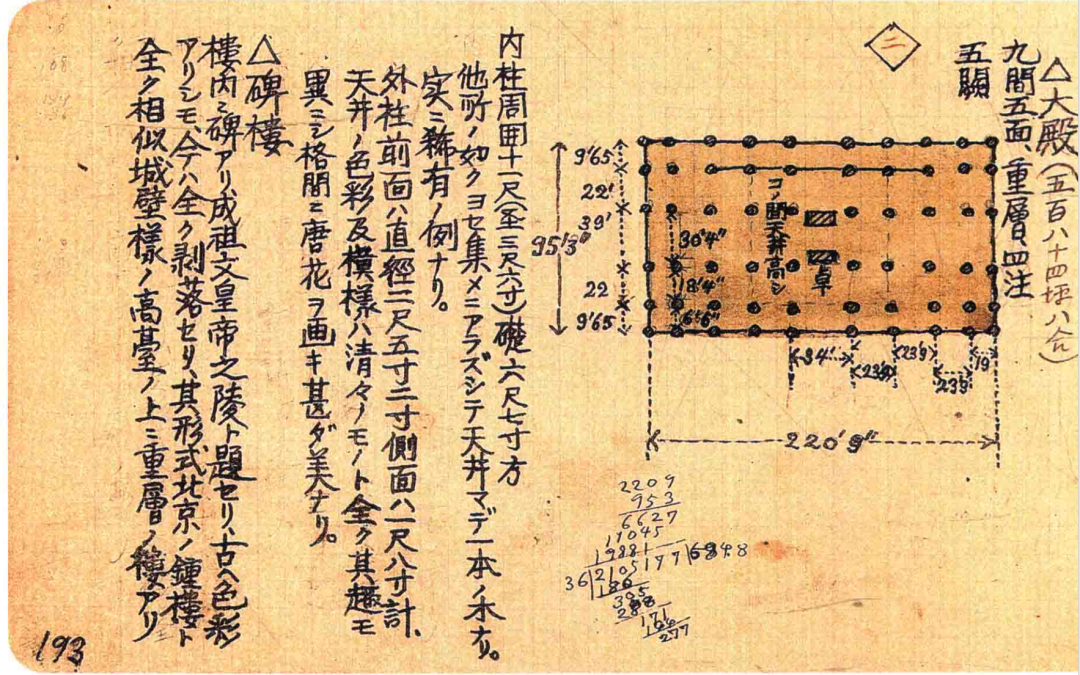 △大殿(五百八十四坪八合)
九間五面、重層、四注
五闢
二
コノ間天井高シ
卓
9'65
22'
39'
22
9'65
95'3"
30'4"
8'4"
6'6"
34'
23'9
23'9
23'9
19
220'9"
2209
953
6627
11045
19881
36|2105177|5848
180
305
288
171
144
277
内柱周囲十一尺(圣三尺六寸)礎六尺七寸方
他所ノ如クヨセ集メニアラズシテ天井マデ一本ノ木ナリ。
実ニ稀有ノ例ナリ。
外柱前面ハ直徑二尺五寸二寸側面ハ一尺八寸計、
天井ノ色彩及模様ハ清々ノモノト全ク其趣モ
異ニシ格間ニ唐花ヲ画キ甚ダ美ナリ。
△碑樓
樓内ニ碑アリ、成祖文皇帝之陵ト題セリ、古ヘ色彩
アリシモ、今ハ全ク剥落セリ、其形式北京ノ鍾樓ト
全ク相似城壁様ノ高臺ノ上ニ重層ノ樓アリ
193